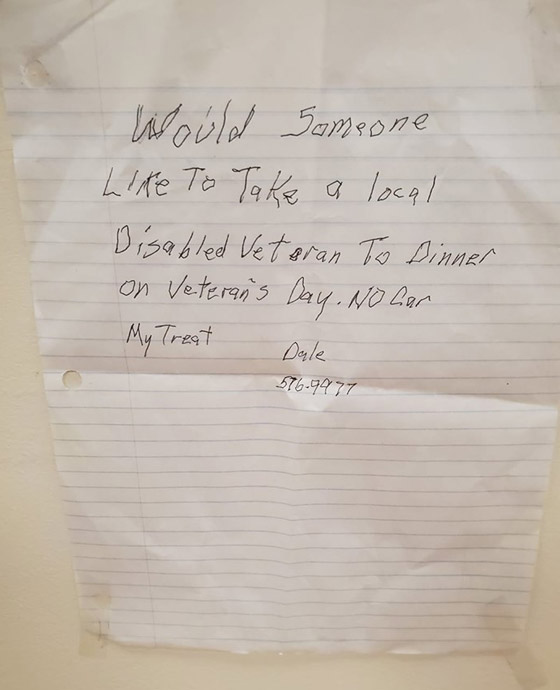 Would Someone
Like To Take a local
Disabled Veteran To Dinner
on Veteran's Day. NO Car
My Treat
Dale
576-9977